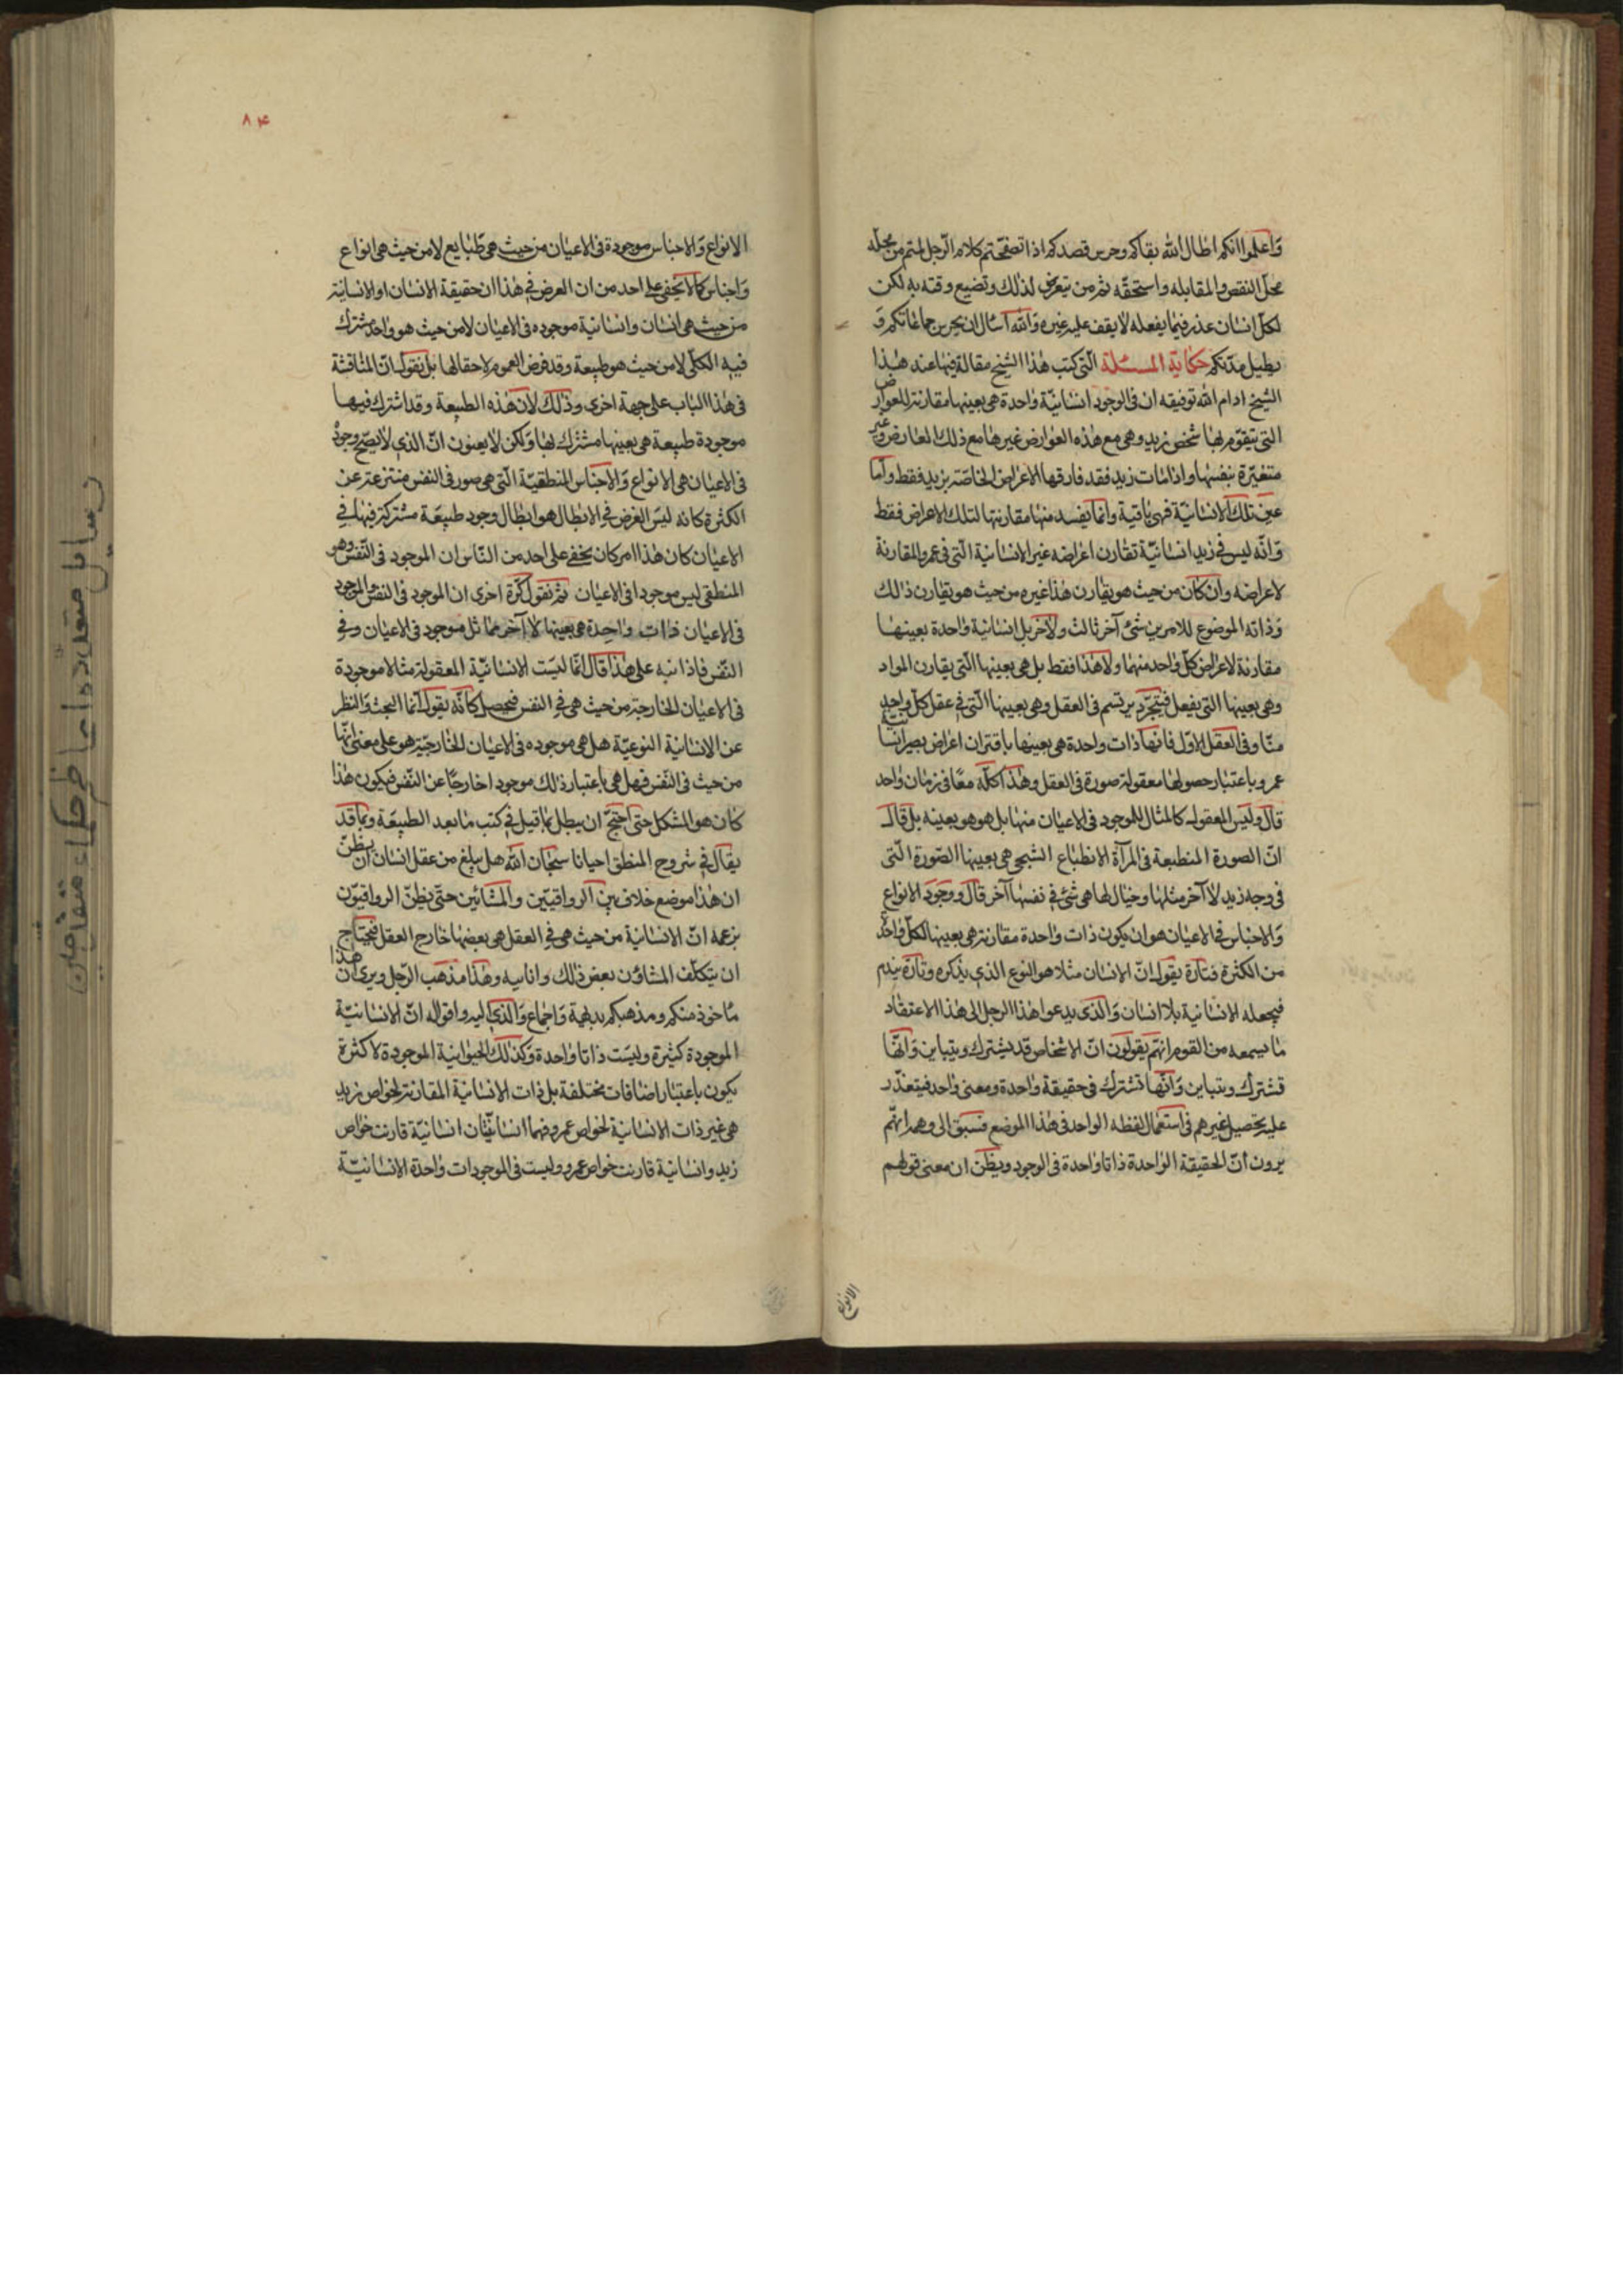 واعلموا انكم اطال الله بقاكم وحرس قصدكم اذا تصفحتم كلام الرجل لمتم من محله
محل النقص والمقابله واستحقه ثم من يتعرض لذلك وتضييع وقته به لكن
لكل انسان عذر فيما يفعله لا يقف عليه غيره والله اسأل ان يحرس جماعاتكم و
يطيل مدتكم حكاية المسئلة التى كتب هذا الشيخ مقالة فيها عند هذا
الشيخ ادام الله توفيقه ان فى الوجود انسانية واحدة هى بعينها مقارنة للعوارض
التى يتقوم بها شخص زيد وهى مع هذه العوارض غيرها مع ذلك العارض وغير
متغيرة بنفسها واذا مات زيد فقد فارقها الاعراض الخاصة بزيد فقط واما
عين تلك الانسانية فهى باقية وانما يفسد منها مقارنتها لتلك الاعراض فقط
وانه ليس فى زيد انسانية تقارن اعراضه غير الانسانية التى فى عمرو المقارنة
لاعراضه وان كان من حيث هو يقارن هذا غيره من حيث هو يقارن ذالك
وذاته الموضوع للامرين شئ آخر ثالث ولآخر بل انسانية واحدة بعينها
مقارنة لاعراض كل واحد منهما ولا هذا فقط بل هى بعينها التى يقارن المواد
وهى بعينها التى يفعل فيتجرد يرتسم فى العقل وهى بعينها التى فى عقل كل واحد
منا وفى العقل الاول فانها ذات واحدة هى بعينها باقتران اعراض يصير انسانية
عمرو باعتبار حصولها معقولة صورة فى العقل وهذا كله معا فى زمان واحد
قال وليس المعقول كالمثال للموجود فى الاعيان منها بل هو هو بعينه بل قال
ان الصورة المنطبعة فى المرآة الانطباع الشبحى هى بعينها الصورة التى
فى وجه زيد لا آخر مثلها وخيال لها هى شئ فى نفسها آخر قال ووجود الانواع
والاجناس فى الاعيان هو ان يكون ذات واحدة مقارنة هى بعينها لكل واحد
من الكثرة فتارة يقول ان الانسان مثلا هو النوع الذى يذكره وتارة
فيجعله الانسانية بلا انسان والذى يدعوا هذا الرجل الى هذا الاعتقاد
ما يسمعه من القوم انهم يقولون ان الاشخاص قد يشترك ويتباين وانها
تشترك ويتباين وانها تشترك فى حقيقة واحدة ومعنى واحد فيتعذر
عليه تحصيل غيرهم فى استعمال لفظه الواحد فى هذا الموضع فسبق الى وهمه انهم
يرون ان الحقيقة الواحدة ذاتا واحدة فى الوجود ويظن ان معنى قولهم
الانواع
٨٤
الانواع والاجناس موجودة فى الاعيان من حيث هى طبايع لا من حيث هى انواع
واجناس كما لا يخفى على احد من ان الغرض فى هذا ان حقيقة الانسان او الانسانية
من حيث هى انسان وانسانية موجوده فى الاعيان لا من حيث هو واحد مشترك
فيه الكلى لا من حيث هو طبيعة وقد فرض العموم لاحقا لها بل نقول ان المناقشة
فى هذا الباب على جهة اخرى وذلك لان هذه الطبيعة وقد اشترك فيها
موجودة طبيعة هى بعينها مشترك لها ولكن لا يعنون ان الذى لا يصح وجود
فى الاعيان هى الانواع والاجناس المنطقية التى هى صور فى النفس منتزعة عن
الكثرة كانه ليس الغرض فى الابطال هو ابطال وجود طبيعة مشتركة فيها فى
الاعيان كان هذا امر كان يخفى على احد من الناس ان الموجود فى النفس وهو
المنطقى ليس موجودا فى الاعيان ثم نقول كرة اخرى ان الموجود فى النفس والموجود
فى الاعيان ذات واحدة هى بعينها لا آخر مماثل موجود فى الاعيان وفى
النفس فاذا نبه على هذا قال انما ليست الانسانية المعقولة مثلا موجودة
فى الاعيان الخارجة من حيث هى فى النفس فحصل كانه يقول انما البحث والنظر
عن الانسانية النوعية هل هى موجوده فى الاعيان الخارجية هو على معنى انها
من حيث فى النفس فهل هى باعتبار ذلك موجودا خارجا عن النفس فيكون هذا
كان هو المشكل حتى احتج ان يبطل بما قيل فى كتب ما بعد الطبيعة وبما قد
يقال فى شروح المنطق احيانا سبحان الله هل يبلغ من عقل انسان ان يظن
ان هذا موضع خلاف بين الرواقيين والمشائين حتى يظن الرواقيون
بزعمه ان الانسانية من حيث هى فى العقل هى بعضها خارج العقل فيحتاج
ان يتكلف المشاؤن بعض ذلك وهذا مذهب الرجل ويرى ان هذا
ماخوذ منكم ومذهبكم بديهة واجماع والذى اليه واقواله ان الانسانية
الموجودة كثيرة وليست ذاتا واحدة وكذلك الحيوانية الموجودة لا كثرة
يكون باعتبار اضافات مختلفة بل ذات الانسانية المقارنة لخواص زيد
هى غير ذات الانسانية لخواص عمرو فهما انسانيتان انسانية قارنت خواص
زيد وانسانية قارنت خواص عمرو وليست فى الموجودات واحدة الانسانية
رسایل متعدده از حکماء متقدمین